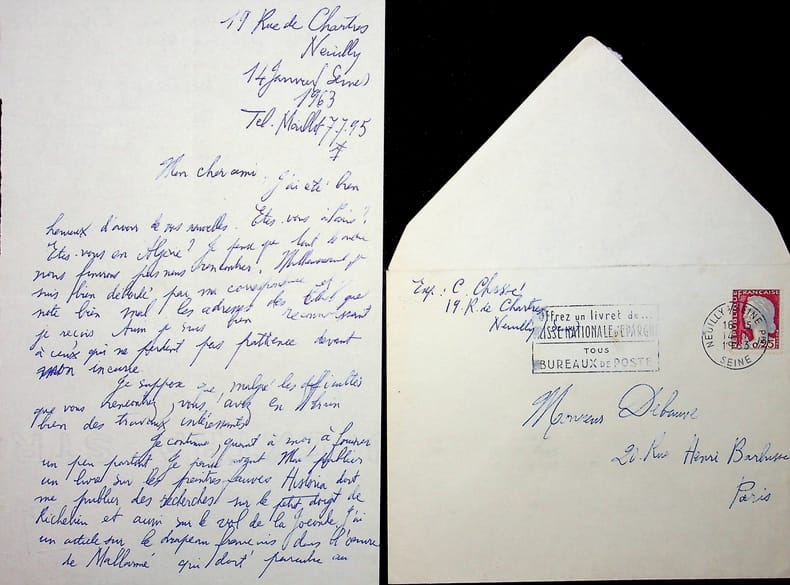 19 Rue de Chartres
Neuilly
14 Janvier (Seine)
1963
Tel. Maillot 77.95
Mon cher ami. J'ai été bien
heureux d'avoir de vos nouvelles. Etes-vous à Paris?
Etes-vous en Algérie? Je pense que tout de même
nous finirons par nous rencontrer. je
suis bien débordé par ma correspondance et
note bien mal les adresses des que
je reçois. Aussi je suis bien reconnaissant
à ceux qui ne perdent pas patience devant
mon incurie.
Je suppose que, malgré les difficultés
que vous rencontrez, vous avez en train
bien des travaux intéressants
Je continue, quant à moi, à
un peu partout. Je pense avant Mai publier
un livre sur les peintres fauves. Historia doit
me publier des recherches sur le petit doigt de
Richelieu et aussi sur le vol de la Joconde. J'ai
un article sur le drapeau français dans l'œuvre
de Mallarmé qui doit paraître au
Exp : C. Chassé
19 R. de Chartres
Neuilly
Offrez un livret de...
CAISSE NATIONALE D'EPARGNE
TOUS
BUREAUX DE POSTE
NEUILLY-S-SEINE PPAL
1963
SEINE
FRANÇAISE
Monsieur Débauve
20 Rue Henri Barbusse
Paris